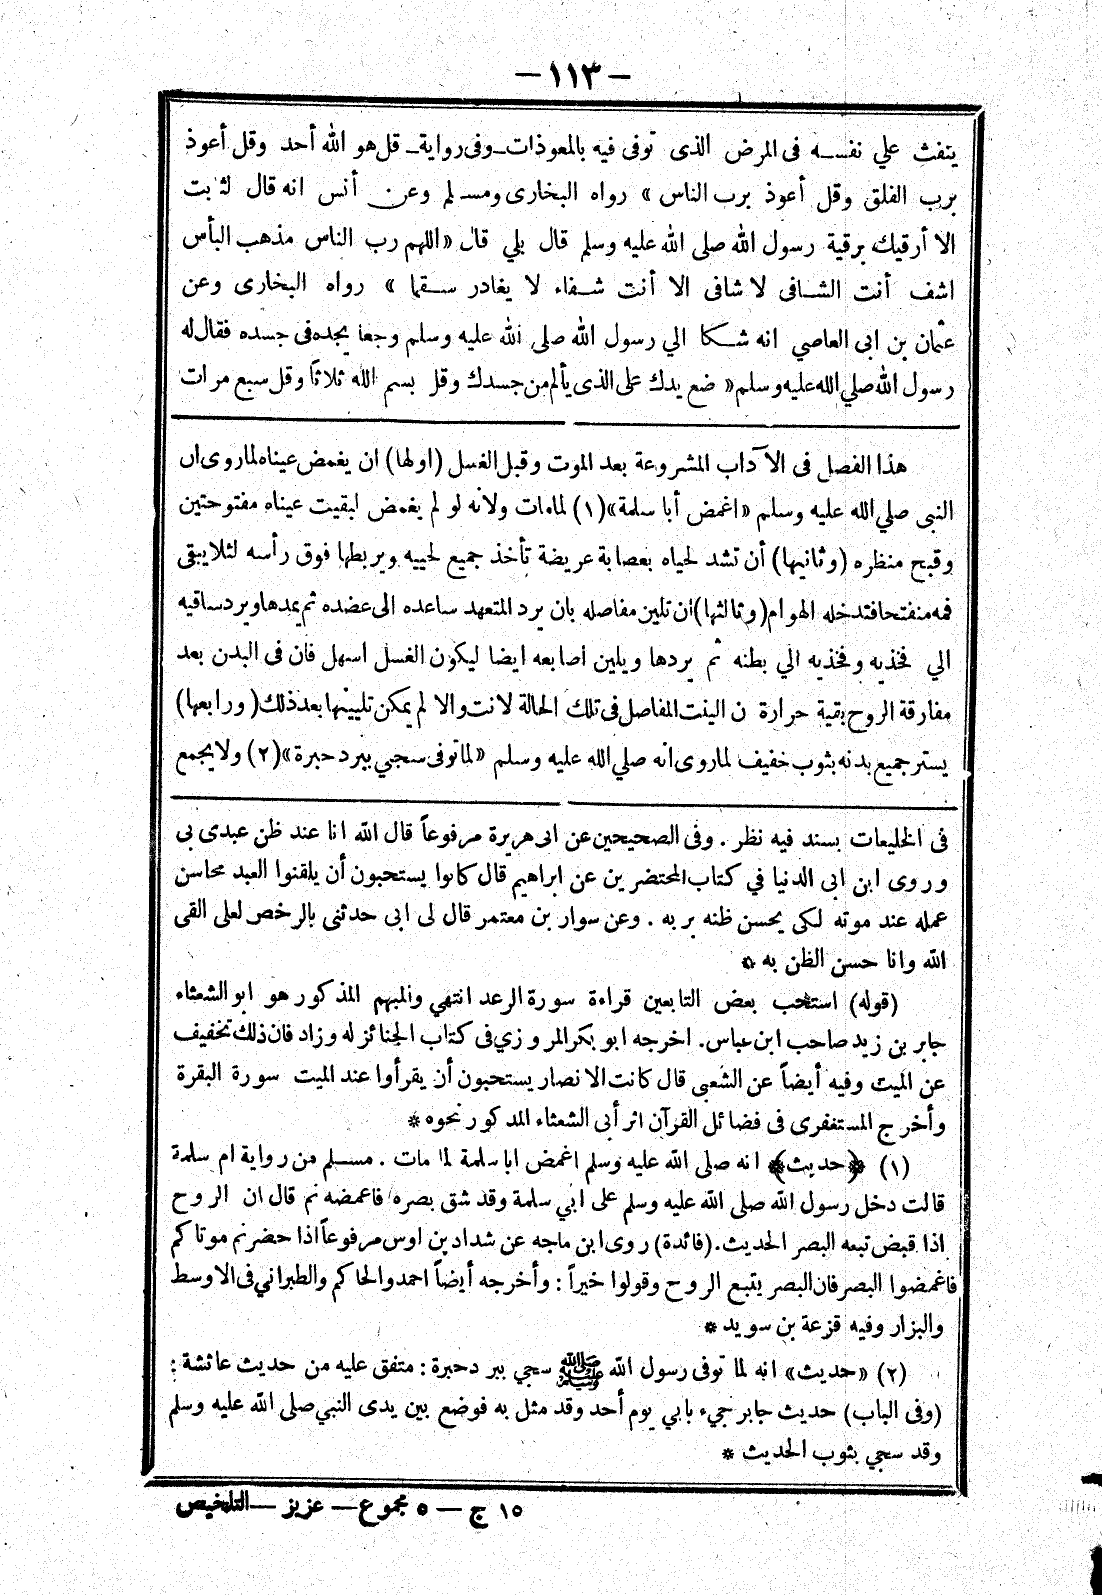 — ١١٣ —
ينفث علي نفسه فى المرض الذى توفى فيه بالمعوذات ــ وفى رواية ــ قل هو الله أحد وقل أعوذ
برب الفلق وقل أعوذ برب الناس » رواه البخارى ومسلم وعن أنس انه قال لثابت
الا أرقيك برقية رسول الله صلى الله عليه وسلم قال بلي قال « اللهم رب الناس مذهب البأس
اشف أنت الشافى لا شافى الا أنت شفاء لا يغادر سقما » رواه البخارى وعن
عثمان بن ابى العاصي انه شكا الي رسول الله صلى الله عليه وسلم وجعا يجده فى جسده فقال له
رسول الله صلي الله عليه وسلم « ضع يدك على الذى يألم من جسدك وقل بسم الله ثلاثاً وقل سبع مرات
هذا الفصل فى الآداب المشروعة بعد الموت وقبل الغسل (اولها) ان يغمض عيناه لما روى ان
النبى صلي الله عليه وسلم « اغمض أبا سلمة» (١) لما مات ولانه لو لم يغمض لبقيت عيناه مفتوحتين
وقبح منظره (وثانيها) أن تشد لحياه بعصابة عريضة تأخذ جميع لحييه ويربطها فوق رأسه لئلا يبقى
فمه منفتحا فتدخله الهوام (وثالثها) ان تلين مفاصله بان يرد المتعهد ساعده الى عضده ثم يمدها ويرد ساقيه
الي فخذيه وفخذيه الي بطنه ثم يردها ويلين أصابعه ايضا ليكون الغسل اسهل فان فى البدن بعد
مفارقة الروح بقية حرارة ن الينت المفاصل فى تلك الحالة لانت والا لم يمكن تليينها بعد ذلك (ورابعها)
يستر جميع بدنه بثوب خفيف لما روى انه صلي الله عليه وسلم « لما توفى سجي ببرد حبرة» (٢) ولا يجمع
فى الخليعات بسند فيه نظر . وفى الصحيحين عن ابى هريرة مرفوعاً قال الله انا عند ظن عبدى بى
وروى ابن ابى الدنيا في كتاب المحتضرين عن ابراهيم قال كانوا يستحبون أن يلقنوا العبد محاسن
عمله عند موته لكى يحسن ظنه بربه . وعن سوار بن معتمر قال لى ابى حدثنى بالرخص لعلى القى
الله وانا حسن الظن به *
(قوله) استحب بعض التابعين قراءة سورة الرعد انتهي والمبهم المذكور هو ابو الشعثاء
جابر بن زيد صاحب ابن عباس . اخرجه ابو بكر المروزي فى كتاب الجنائز له وزاد فان ذلك تخفيف
عن الميت وفيه أيضاً عن الشعبى قال كانت الانصار يستحبون أن يقرأوا عند الميت سورة البقرة
وأخرج المستغفرى فى فضائل القرآن اثر أبى الشعثاء المذكور نحوه *
(١) ﴿حديث﴾ انه صلى الله عليه وسلم اغمض ابا سلمة لما مات . مسلم من رواية ام سلمة
قالت دخل رسول الله صلى الله عليه وسلم على ابي سلمة وقد شق بصره فاغمضه ثم قال ان الروح
اذا قبض تبعه البصر الحديث . (فائدة) روى ابن ماجه عن شداد بن اوس مرفوعاً اذا حضرتم موتاكم
فاغمضوا البصر فان البصر يتبع الروح وقولوا خيراً : وأخرجه أيضاً احمد والحاكم والطبراني فى الاوسط
والبزار وفيه قزعة بن سويد *
(٢) « حديث» انه لما توفى رسول الله ﷺ سجي ببر دحبرة : متفق عليه من حديث عائشة :
(وفى الباب) حديث جابر جيء بابي يوم أحد وقد مثل به فوضع بين يدى النبي صلى الله عليه وسلم
وقد سجي بثوب الحديث *
١٥ ج — ٥ مجموع — عزيز — التلخيص